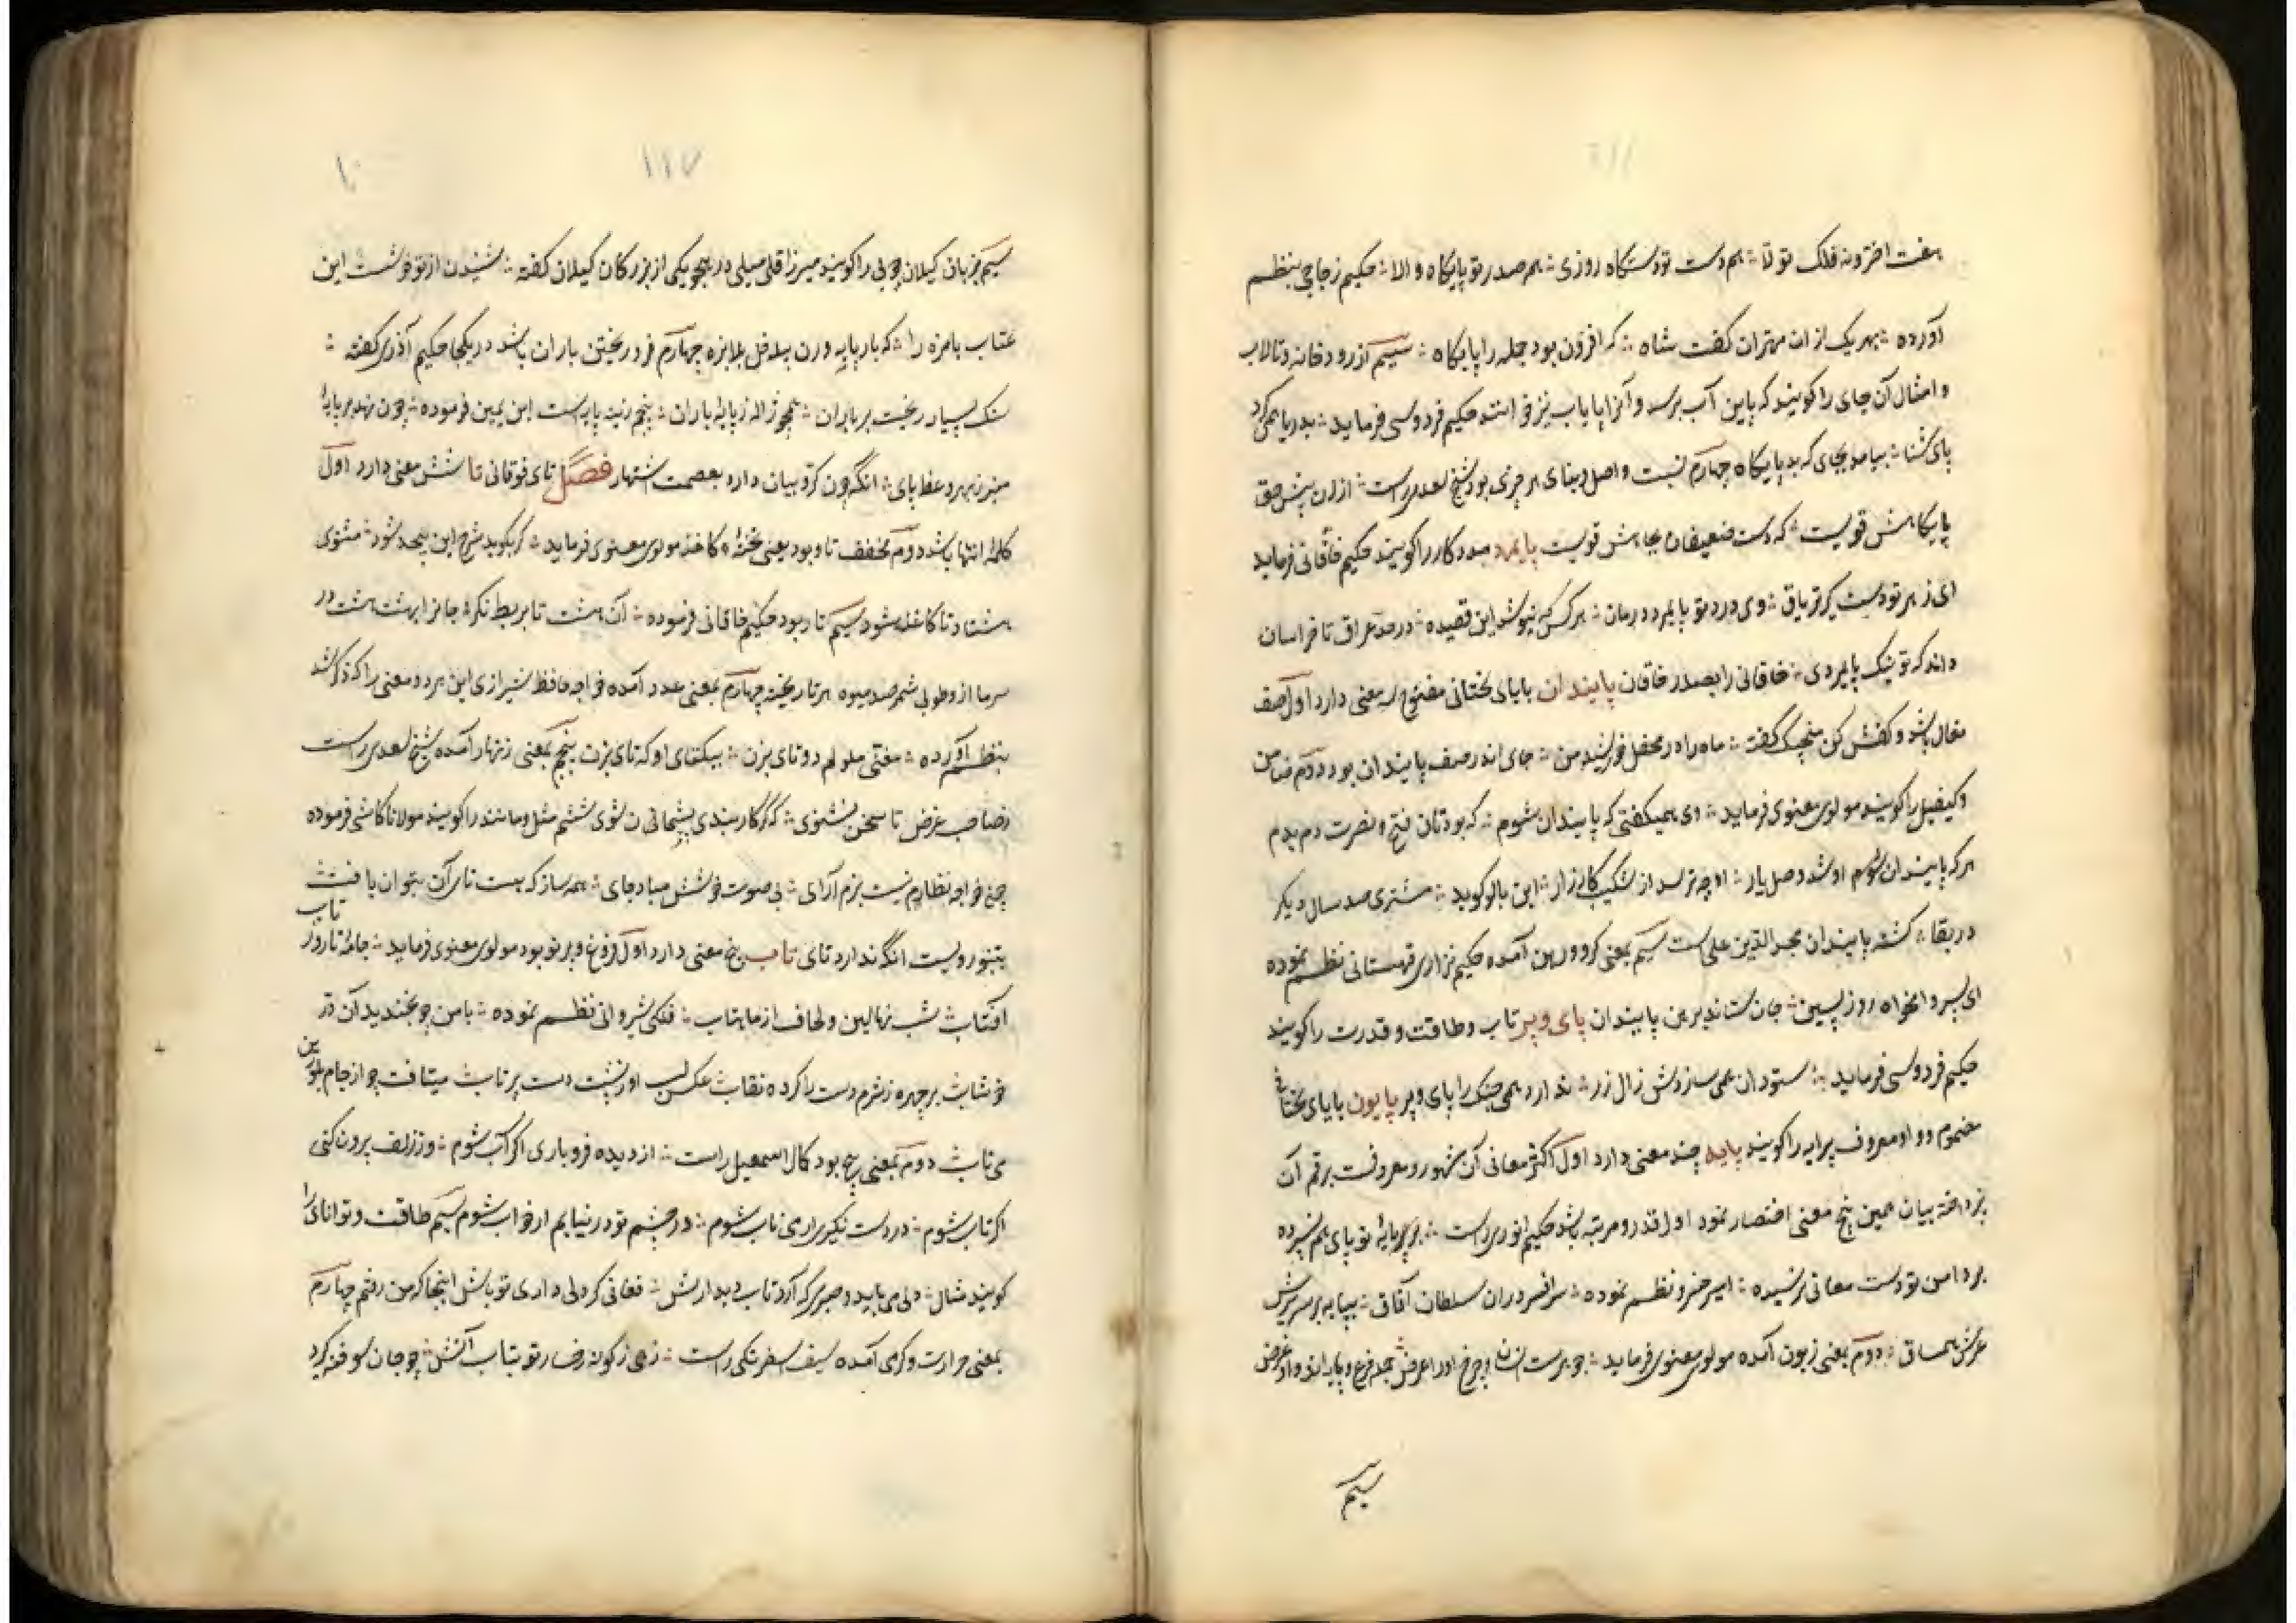 هفت اختر و نه فلک تولا ؞ هم دست تو دستگاه روزی ؞ هم صدر تو پایگاه والا ؞ حکیم زجاجی بنظم
آورده ؞ بهر یک از ان مهتران گفت شاه ؞ که افزون بود جمله را پایگاه ؞ سیم از رودخانه و تالاب
و امثال آن جای را گویند که پا بن آب برسد و آنرا پایاب نیز خوانند حکیم فردوسی فرماید ؞ بدریا همی کرد
پای شنا ؞ بیامد بجای که بد پایگاه چهارم نسبت و اصل و بنای هر چیزی بود شیخ سعدی راست ؞ ازان پیش حق
پایگاهش قویست ؞ که دست ضعیفان بجاهش قویست پایمرد مددکار را گویند حکیم خاقانی فرماید
ای زهر تو دستگیر تریاق ؞ وی درد تو پایمرد درمان ؞ هر کس که نیوشد این قصیده ؞ در حد عراق تا خراسان
داند که تو نیک پایمردی ؞ خاقانی را بصدر خاقان پایندان بایای تحتانی مفتوح سه معنی دارد اول صف
نعال باشد و کفش کن منجیک گفته ؞ ماه را در محفل خورشید من ؞ جای اندر صف پایندان بود دوم ضامن
و کیفیل را گویند مولوی معنوی فرماید ؞ وی همیگفتی که پایندان شوم ؞ که بودتان فتح و نصرت دم بدم
هر که پایندان او شد وصل یار ؞ او چه ترسد از شکست کارزار ؞ ابن بالو گوید ؞ مشتری صد سال دیگر
در بقا ؞ گشته پایندان مجد الدین علی است سیم بمعنی گرو و رهن آمده حکیم نزاری قهستانی نظم نموده
ای پسر وامخواه روز پسین ؞ جان ستاند برهن پایندان پای و پر تاب و طاقت و قدرت را گویند
حکیم فردوسی فرماید ؞ ستودان همی سازدش زال زر ؞ ندارد همی جنک را پای و پر پایون بایای تحتانی
مضموم و واو معروف پیرایه را گویند پایه چند معنی دارد اول آکثر معانی آن مشهور و معروفست برقم آن
نپرداخته ببیان همین پنج معنی اختصار نمود اول قدر و مرتبه باشد حکیم انوری راست ؞ بر پایهٔ تو پای هم نسپرده
بر دامن تو دست معانی نرسیده ؞ امیر خسرو نظم نموده ؞ سرافسر دران سلطان آفاق ؞ بپایه برسریرش
عرش هم ساق ؞ دوم بمعنی زبون آمده مولوی معنوی فرماید ؞ جوهرست انسان و چرخ او را عرض ؞ جمله فرع و پایه اند و او غرض
سیم
۱۱۷
۱۰
سیم بزبان گیلان چوبی را گویند میرزا قلی میلی در هجو یکی از بزرگان گیلان گفته ؞ شنیدن از تو خوشست این
عتاب بامزه را ؞ که بار پایه ورن چهارم فرو ریختن باران باشد دریکجا حکیم آذری گفته ؞
سنک بسیار ریخت بر یاران ؞ همچو ژاله ز پایهٔ باران ؞ پنجم زینه پایه است ابن یمین فرموده ؞ چون نهد بر پایهٔ
منبر ز بهر وعظ پای ؞ انگه چون کروبیان دارد بعصمت اشتهار فصل تای فوقانی تا شش معنی دارد اول
کلمهٔ انتها باشد دوم مخفف تاو بود یعنی تختهٔ کاغذ مولوی معنوی فرماید ؞ گر بگویم شرح این بیحد شود ؞ مثنوی
هشتاد تا کاغذ شود سیم تار بود حکیم خاقانی فرموده ؞ آن هشت تا بربط نگر ؞ جانرا بهشت هشت در
هر تا ریخته چهارم بمعنی عدد آمده خواجه حافظ شیرازی این هر دو معنی را که ذکر شد
بنظم آورده ؞ مغنی ملولم دو تای بزن ؞ بیکتای او که تای بزن پنجم بمعنی زنهار آمده شیخ سعدی راست
ز صاحب غرض تا سخن نشنوی ؞ که گر کار بندی پشیمان شوی ششم مثل و مانند را گویند مولانا کاشی فرموده
چون خواجه نظام نیست بزم آرای ؞ بی صوت خوشش مباد جای ؞ همه ساز که هست تای آن بتوان یافت
تاب
تنبور ویست انگه ندارد تای تاب پنج معنی دارد اول فروغ و پرتو بود مولوی معنوی فرماید ؞ جامهٔ ما روز
افتاب ؞ شب نهالین و لحاف از ماهتاب ؞ فلکی شروانی نظم نموده ؞ با من چو بخندید آن در
خوشاب بر چهره ز شرم دست را کرده نقاب عکس لب او ز پشت دست پرتاب میتافت چو از جام بلورین
می ناب دوم بمعنی پیچ بود کمال اسمعیل راست ؞ از دیده فرو باری اگر آب شوم ؞ وز زلف برون کنی
اگر تاب شوم ؞ در دست نگیری ار می ناب شوم ؞ در چشم تو در نیایم ار خواب شوم سیم طاقت و توانای را
گویند مثال ؞ دلی می باید و صبری که آرد تاب دیدارش ؞ فغانی گر دلی داری تو باش اینجا که من رفتم چهارم
بمعنی حرارت و گرمی آمده سیف اسفرنکی راست ؞ زهی ز گونه رخسار تو بتاب آتش ؞ چو جان سوخته گرد